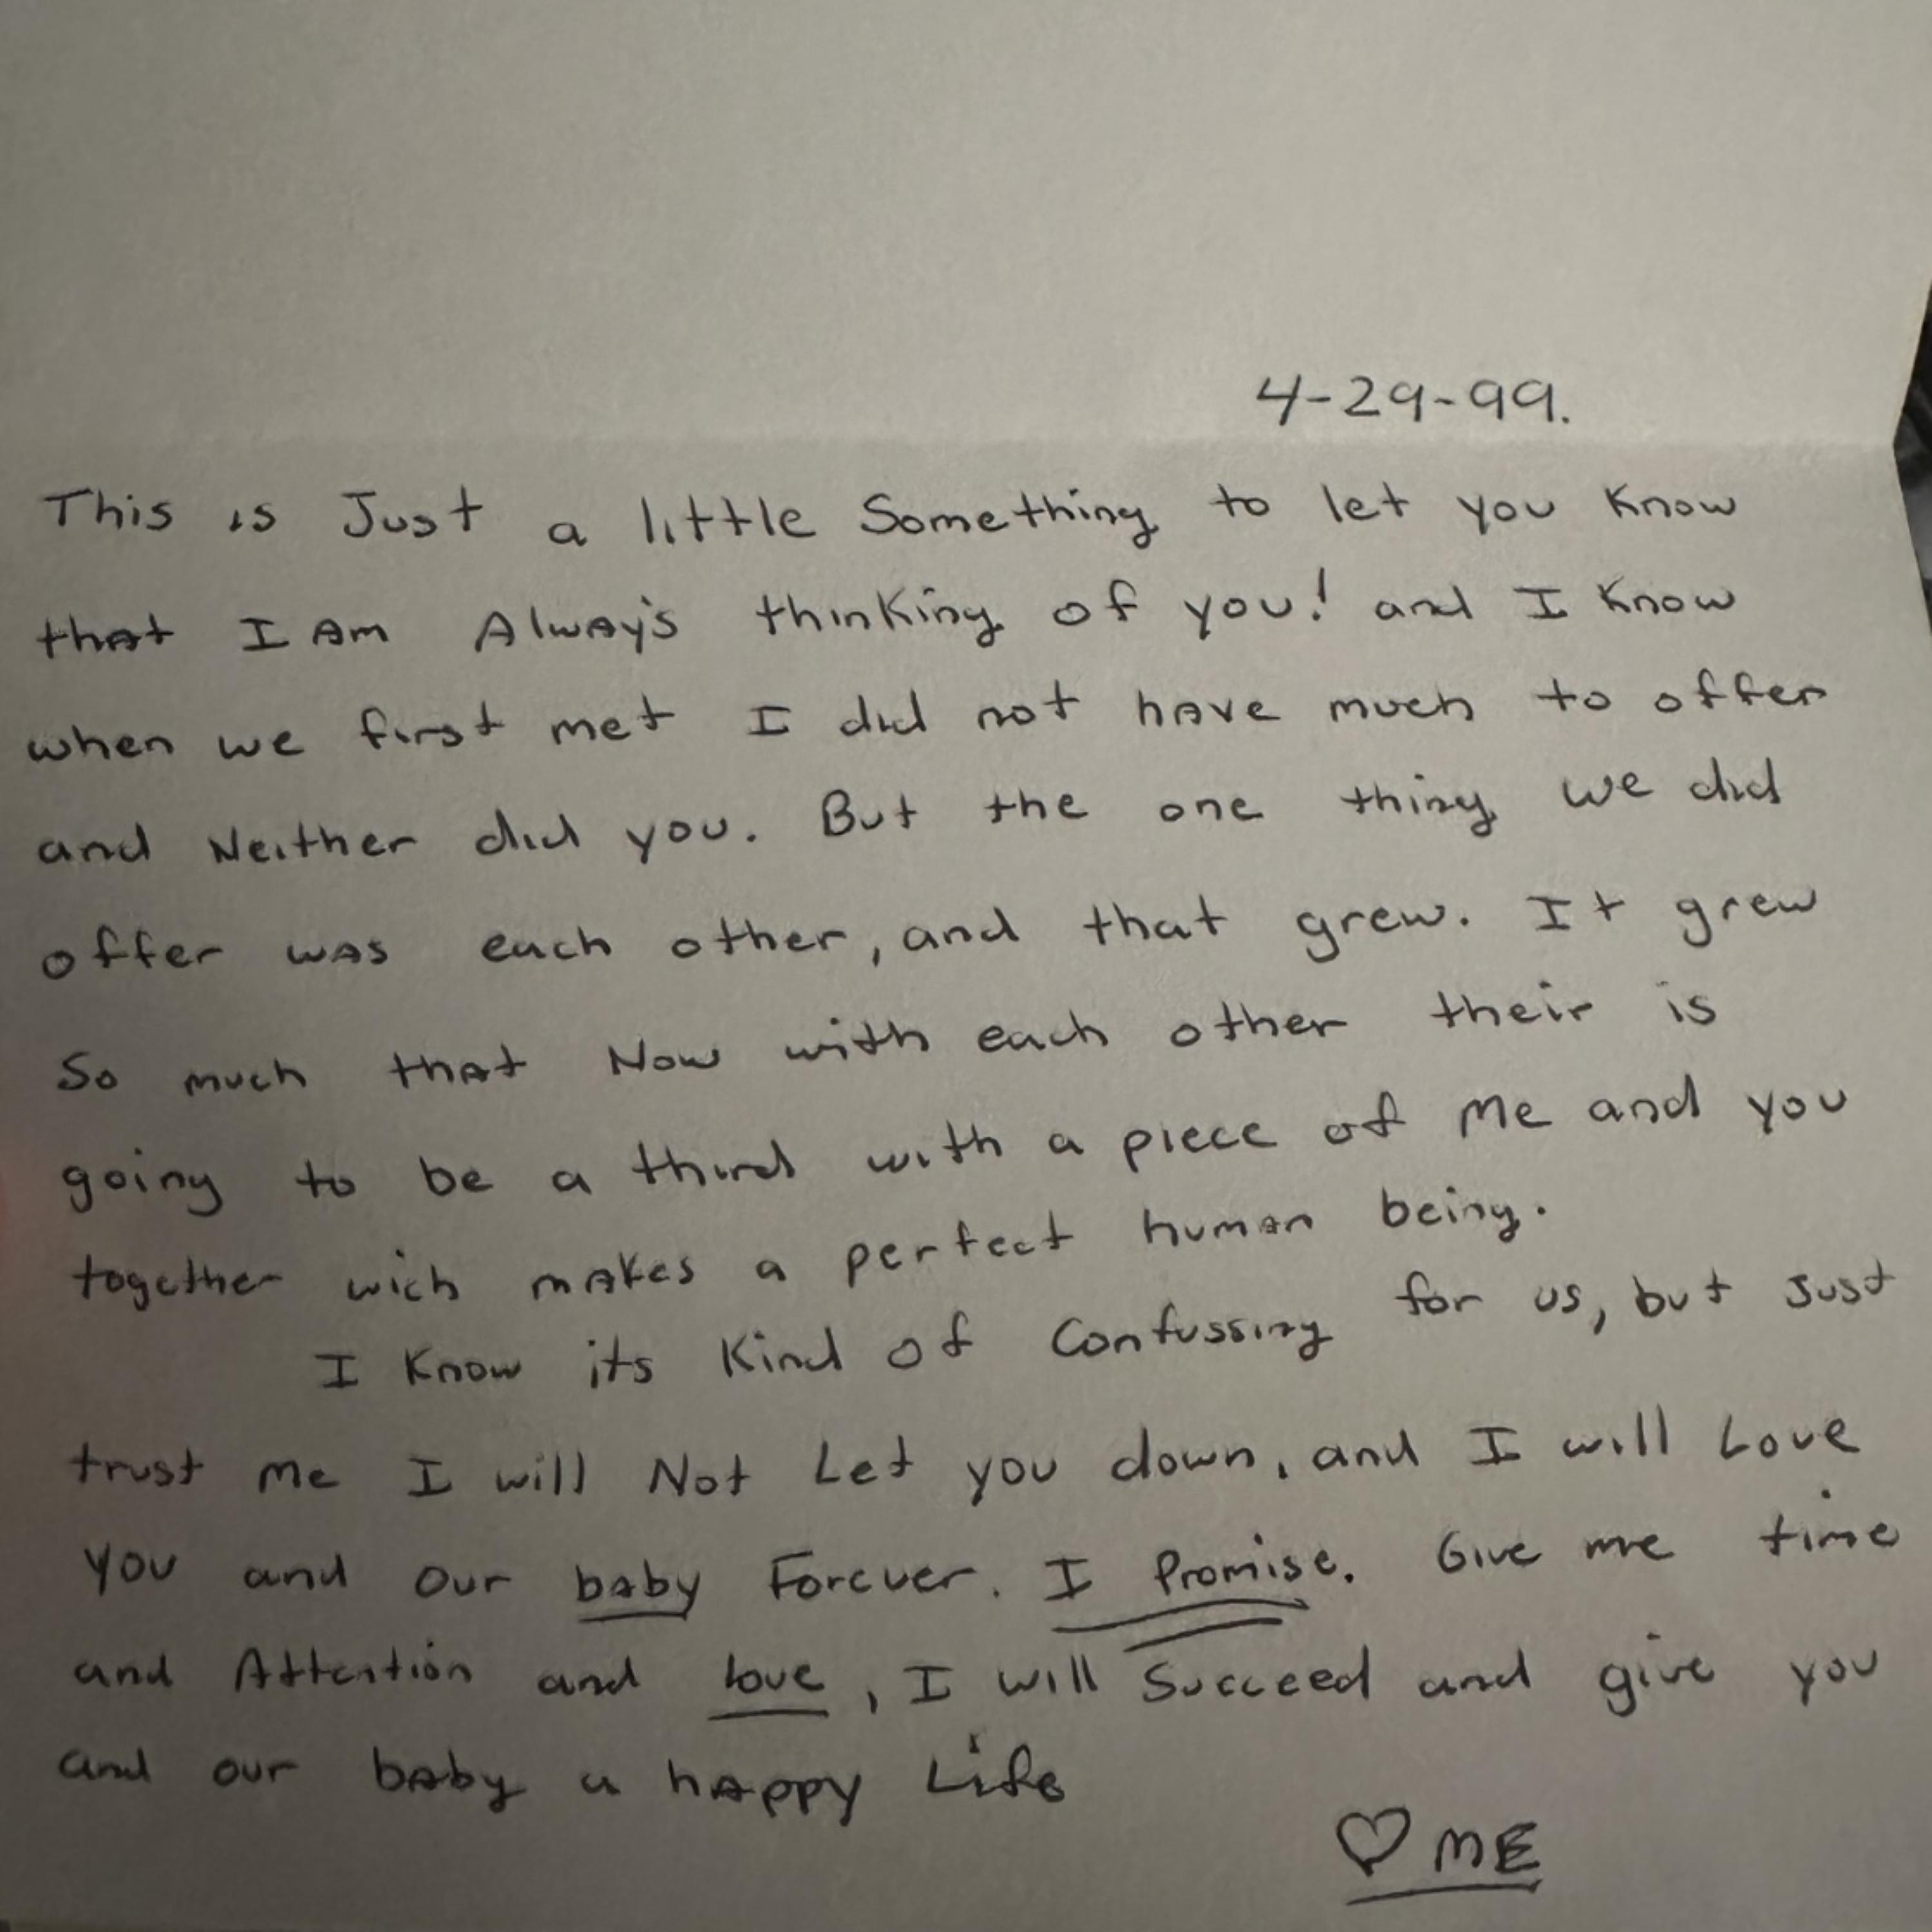 4-29-99.
This is Just a little Something to let you Know
that I Am Alway's thinking of you! and I Know
when we first met I did not have much to offer
and Neither did you. But the one thing we did
offer was each other, and that grew. It grew
So much that Now with each other their is
going to be a third with a piece of Me and you
together wich makes a perfect human being.
I Know its Kind of Confussing for us, but Just
trust me I will Not Let you down, and I will Love
you and our baby Forever. I Promise. Give me time
and Attention and love, I will Succeed and give you
and our baby a happy Life
♡ ME